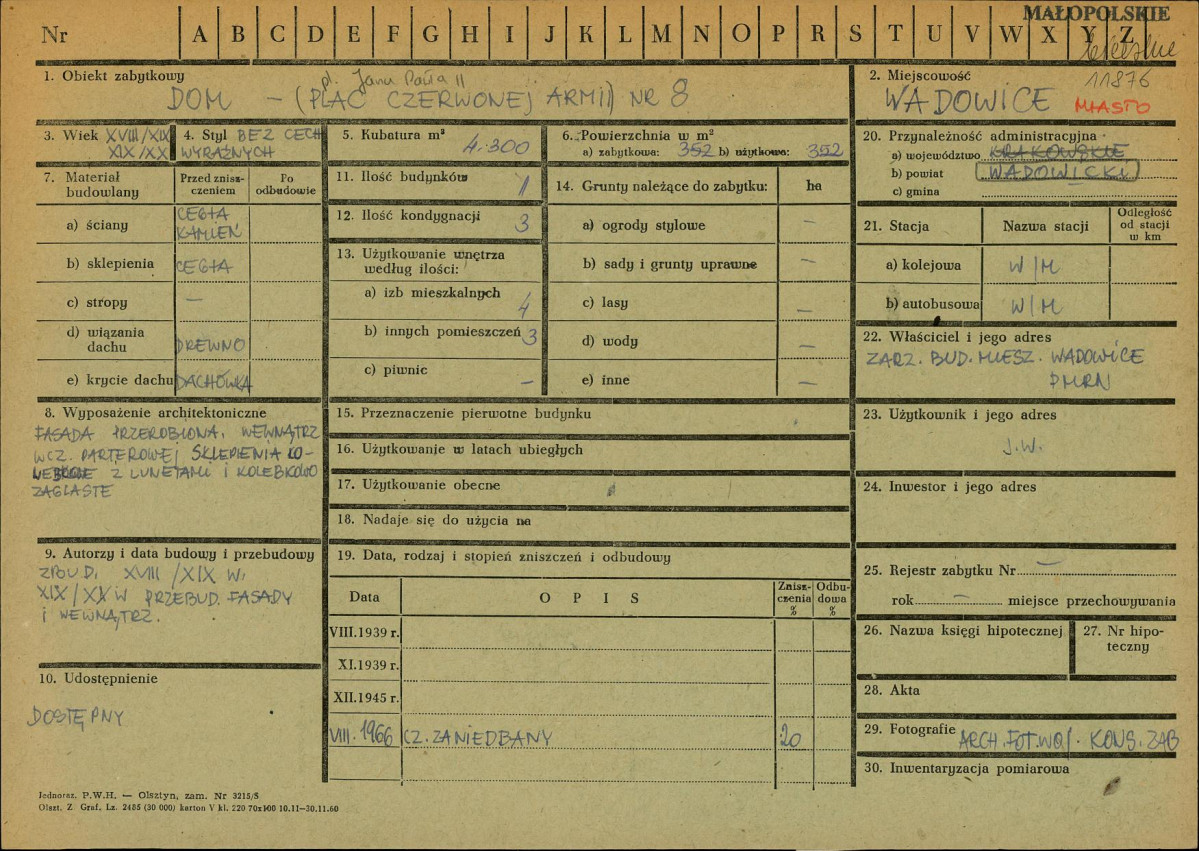 MAŁOPOLSKIE
Nr A B C D E F G H I J K L M N O P R S T U V W X Y Z
11876
1. Obiekt zabytkowy
pl. Jana Pawła II
DOM - (PLAC CZERWONEJ ARMII) NR 8
2. Miejscowość
WADOWICE MIASTO
3. Wiek XVIII/XIX
XIX/XX
4. Styl BEZ CECH
WYRAŹNYCH
5. Kubatura m³
4.300
6. Powierzchnia w m²
a) zabytkowa: 352 b) użytkowa: 352
20. Przynależność administracyjna
a) województwo KRAKOWSKIE
b) powiat WADOWICKI
c) gmina
7. Materiał budowlany
Przed zniszczeniem
Po odbudowie
a) ściany CEGŁA
KAMIEŃ
b) sklepienia CEGŁA
c) stropy —
d) wiązania dachu DREWNO
e) krycie dachu DACHÓWKA
11. Ilość budynków 1
12. Ilość kondygnacji 3
13. Użytkowanie wnętrza
według ilości:
a) izb mieszkalnych 4
b) innych pomieszczeń 3
c) piwnic —
14. Grunty należące do zabytku: ha
a) ogrody stylowe —
b) sady i grunty uprawne —
c) lasy —
d) wody —
e) inne —
21. Stacja Nazwa stacji Odległość od stacji w km
a) kolejowa W/M
b) autobusowa W/M
22. Właściciel i jego adres
ZARZ. BUD. MIESZ. WADOWICE
PMRN
8. Wyposażenie architektoniczne
FASADA PRZEROBIONA. WEWNĄTRZ
W CZ. PARTEROWEJ SKLEPIENIA KO-
Z LUNETAMI I KOLEBKOWO
ZAGLASTE
15. Przeznaczenie pierwotne budynku
16. Użytkowanie w latach ubiegłych
17. Użytkowanie obecne
18. Nadaje się do użycia na
23. Użytkownik i jego adres
J.W.
24. Inwestor i jego adres
9. Autorzy i data budowy i przebudowy
ZBUD. XVIII/XIX W.
XIX/XX W PRZEBUD. FASADY
I WEWNĄTRZ.
19. Data, rodzaj i stopień zniszczeń i odbudowy
Data OPIS Zniszczenia % Odbudowa %
VIII.1939 r.
XI.1939 r.
XII.1945 r.
VIII.1966 CZ. ZANIEDBANY 20
25. Rejestr zabytku Nr —
rok — miejsce przechowywania
26. Nazwa księgi hipotecznej
27. Nr hipoteczny
10. Udostępnienie
DOSTĘPNY
28. Akta
29. Fotografie ARCH. FOT. WOJ. KONS. ZAB
30. Inwentaryzacja pomiarowa
Jednoraz. P.W.H. — Olsztyn, zam. Nr 3215/S
Olszt. Z. Graf. Lz. 2485 (30 000) karton V kl. 220 70x100 10.11—30.11.60